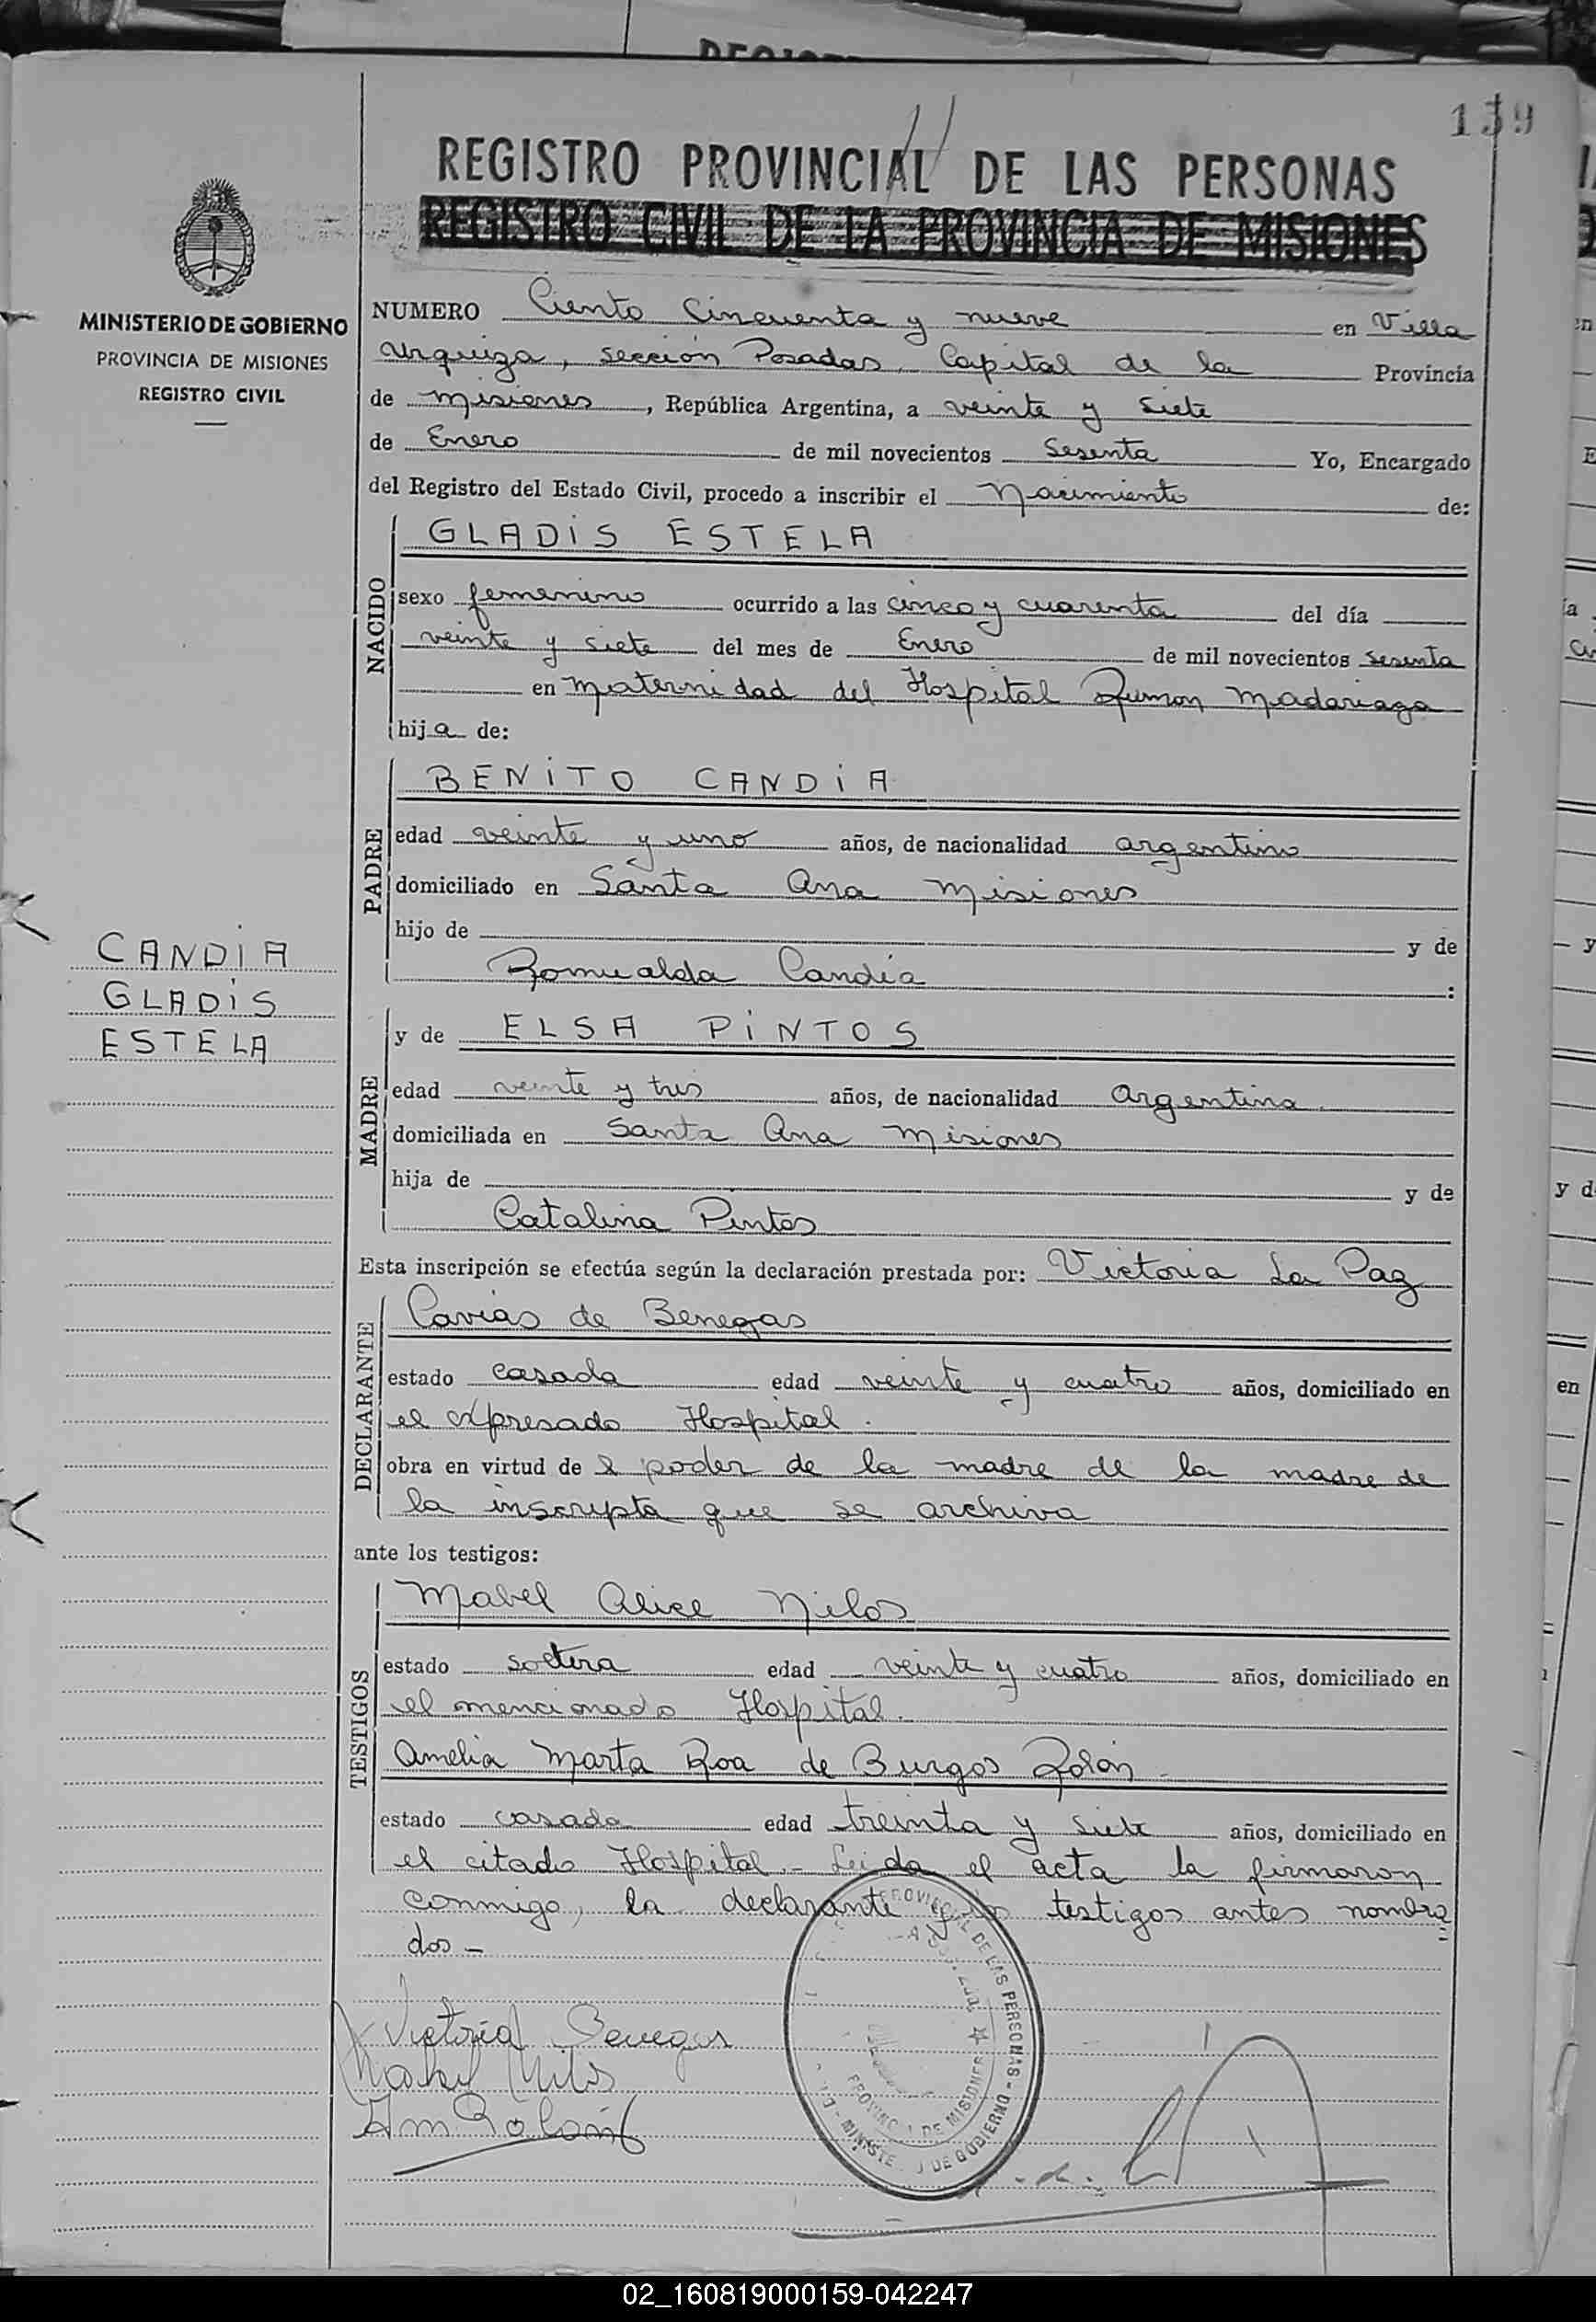 139
REGISTRO PROVINCIAL DE LAS PERSONAS
REGISTRO CIVIL DE LA PROVINCIA DE MISIONES
MINISTERIO DE GOBIERNO
PROVINCIA DE MISIONES
REGISTRO CIVIL
NUMERO Ciento Cincuenta y nueve en Villa
Urquiza, sección Posadas, Capital de la Provincia
de Misiones, República Argentina, a veinte y siete
de Enero de mil novecientos Sesenta Yo, Encargado
del Registro del Estado Civil, procedo a inscribir el Nacimiento de:
NACIDO
GLADIS ESTELA
sexo femenino ocurrido a las cinco y cuarenta del día
veinte y siete del mes de Enero de mil novecientos sesenta
en Maternidad del Hospital Madariaga
hija de:
PADRE
BENITO CANDIA
edad veinte y uno años, de nacionalidad argentino
domiciliado en Santa Ana Misiones
hijo de y de
Romualda Candia :
CANDIA
GLADIS
ESTELA
MADRE
y de ELSA PINTOS
edad veinte y tres años, de nacionalidad Argentina
domiciliada en Santa Ana Misiones
hija de y de
Catalina Pintos
Esta inscripción se efectúa según la declaración prestada por: Victoria La Paz
DECLARANTE
Cavias de Benegas
estado casada edad veinte y cuatro años, domiciliado en
el expresado Hospital.
obra en virtud de poder de la madre de la madre de
la inscripta que se archiva
ante los testigos:
TESTIGOS
Mabel Alice Nilos
estado soltera edad veinte y cuatro años, domiciliado en
el mencionado Hospital.
Amelia Marta Roa de Burgos Rolón
estado casada edad treinta y siete años, domiciliado en
el citado Hospital.- Leida el acta la firmaron
conmigo, la declarante testigos antes nombra
dos -
Victoria Benegas
Mabel Nilos
Am Rolón
DE LAS PERSONAS - MINISTE DE GOBIERNO
PROVINCIA DE MISIONES
02_160819000159-042247